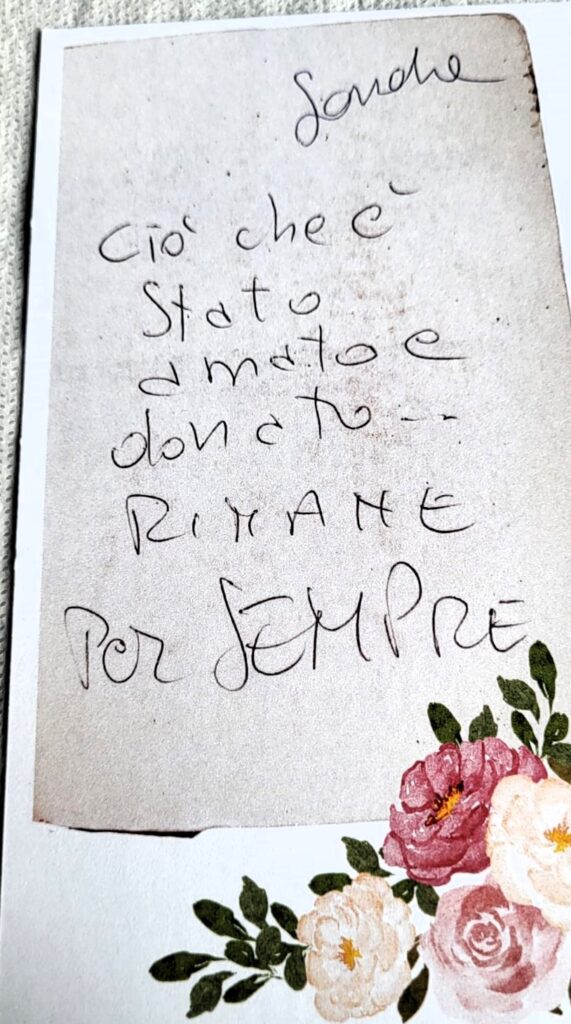 Ciò che è
Stato
amato e
donato...
RIMANE
Per SEMPRE